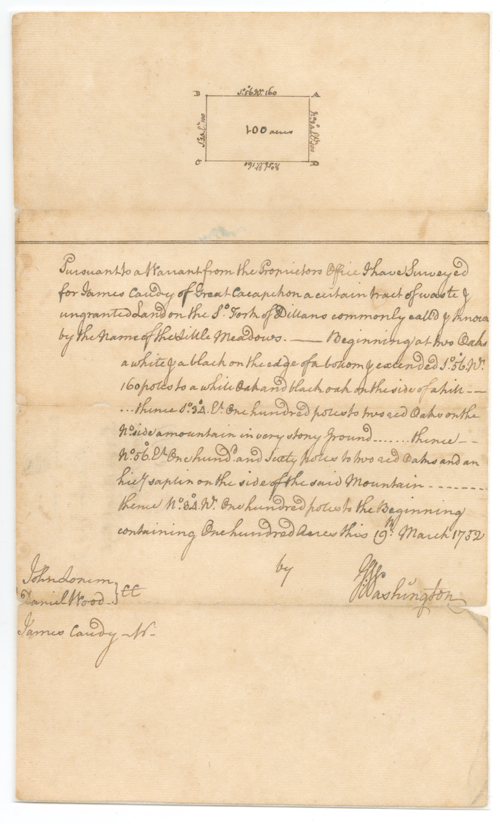 B So. 56 Wt. 160 A
100 acres
C D
Pursuant to a Warrant from the Proprietors Office I have Surveyed
for James Caudy of Great Cacapehon a certain tract of waste &
ungranted Land on the So. Fork of Dillans commonly call'd & known
by the Name of the Little Meadows. — Beginning at two Oaks
a white & a black on the edge of a bottom & extended So. 56 Wt.
160 poles to a white Oak and black oak on the side of a hill —
... thence So. 34 Et. One hundred poles to two red Oaks on the
No. side a mountain in very stony Ground ...... thence —
No. 56 Et. One hundd. and sixty poles to two red Oaks and an
hicy saplin on the side of the said Mountain --------
thence No. 34 Wt. One hundred poles to the Beginning
containing One hundred Acres this 19th. March 1752
by GWashington
John Lonem
Daniel Wood } CC
James Caudy —